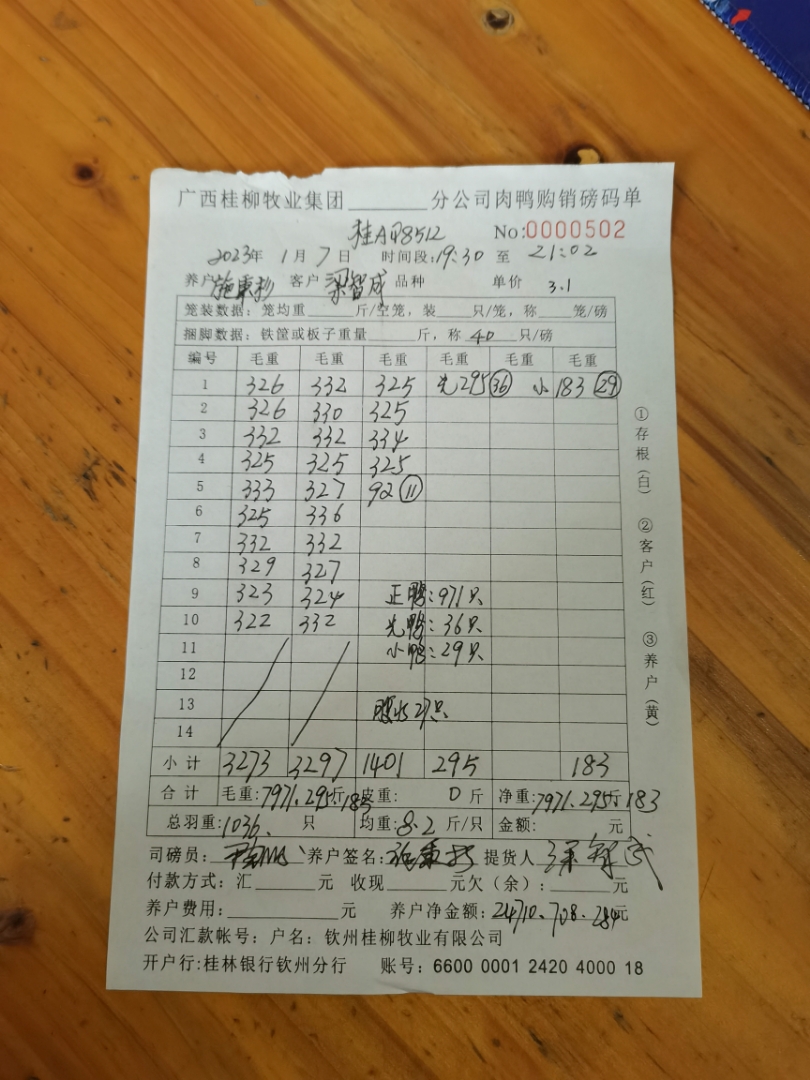 广西桂柳牧业集团________分公司肉鸭购销磅码单
桂A 48512 No:0000502
2023年 1月 7日 时间段:19:30 至 21:02
养户 客户 梁智成 品种 单价 3.1
笼装数据:笼均重____斤/空笼,装____只/笼,称____笼/磅
捆脚数据:铁筐或板子重量____斤,称 40 只/磅
编号 毛重 毛重 毛重 毛重 毛重 毛重
1 326 332 325 295 36 小183 29
2 326 330 325
3 332 332 334
4 325 325 325
5 333 327 92 11
6 325 336
7 332 332
8 329 327
9 323 324 正鸭:971只
10 322 332 鸭:36只
11 小鸭:29只
12
13 27只
14
小计 3273 3297 1401 295 183
合计 毛重:7971.295斤183 皮重: 0斤 净重:7971.295斤183
总羽重:1036. 只 均重:8.2 斤/只 金额: 元
司磅员: 养户签名: 提货人
付款方式:汇______元 收现______元欠(余):______元
养户费用:__________元 养户净金额:24710.708.284元
公司汇款帐号:户名:钦州桂柳牧业有限公司
开户行:桂林银行钦州分行 账号:6600 0001 2420 4000 18
①存根(白) ②客户(红) ③养户(黄)